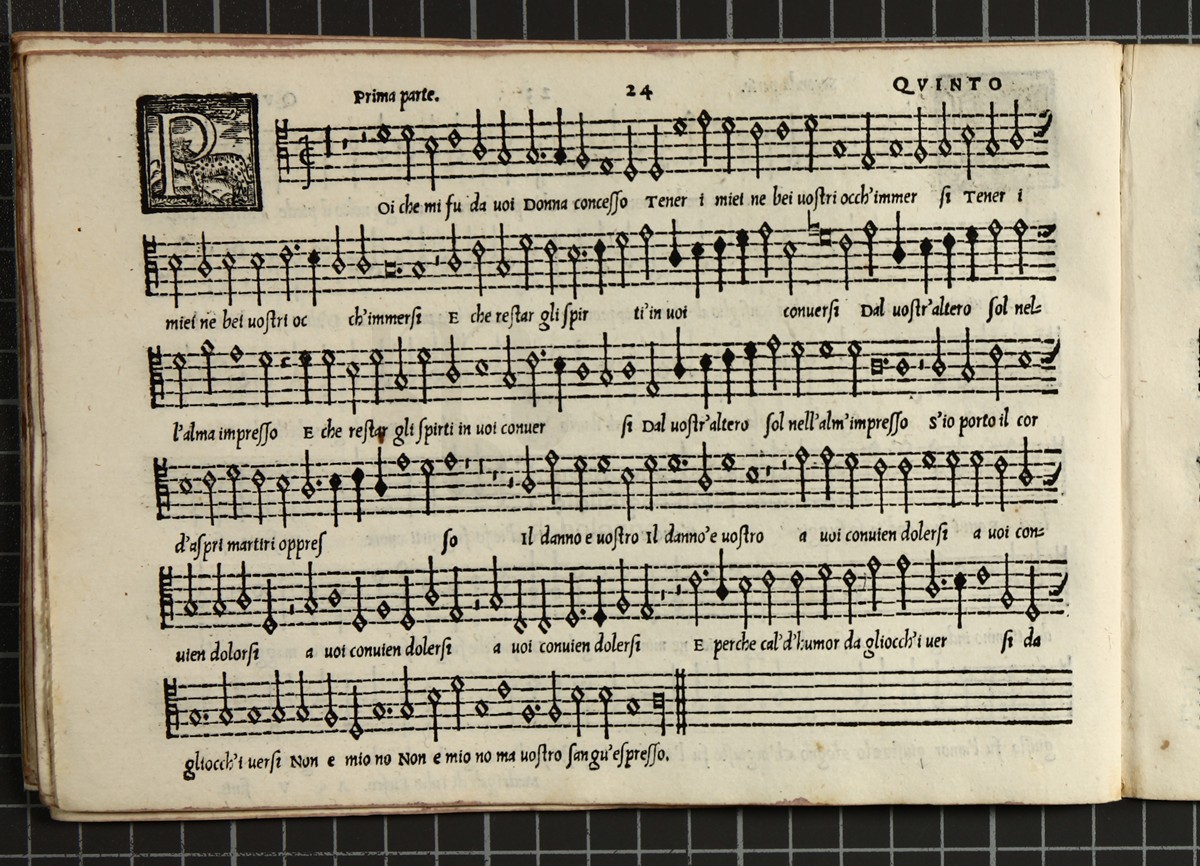 Prima parte. 24 QVINTO
P
Oi che mi fu da uoi Donna concesso Tener i miei ne bei uostri occh'immer si Tener i
miei ne bei uostri oc ch'immersi E che restar gli spir ti'in uoi conuersi Dal uostr'altero sol nel=
l'alma impresso E che restar gli spirti in uoi conuer si Dal uostr'altero sol nell'alm'impresso S'io porto il cor
d'aspri martiri oppres so Il danno e uostro Il danno'e uostro a uoi conuien dolersi a uoi con=
uien dolorsi a uoi conuien dolersi a uoi conuien dolersi E perche cal'd'humor da gliocch'i uer si da
gliocch'i uersi Non e mio no Non e mio no ma uostro sangu'espresso.